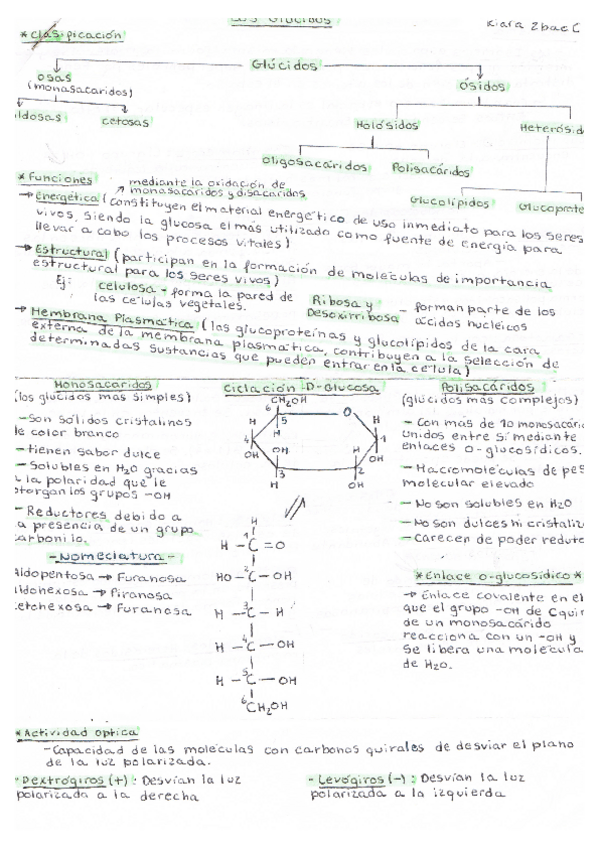 LOS GLÚCIDOS
Kiara 2bac C
* Clasificación
Glúcidos
osas
(monosacáridos)
ósidos
ldosas
cetosas
Holósidos
Heterósid
oligosacáridos
Polisacáridos
Glucolípidos
Glucoprote
* Funciones
mediante la oxidación de
monosacáridos y disacáridos
→ Energética (constituyen el material energético de uso inmediato para los seres
vivos, siendo la glucosa el más utilizado como fuente de energía para
llevar a cabo los procesos vitales)
→ Estructural (participan en la formación de moléculas de importancia
estructural para los seres vivos)
Ej: celulosa → forma la pared de
las células vegetales.
Ribosa y
Desoxirribosa
- forman parte de los
ácidos nucleicos
→ Membrana Plasmática (las glucoproteínas y glucolípidos de la cara
externa de la membrana plasmática, contribuyen a la selección de
determinadas sustancias que pueden entrar en la célula)
Monosacáridos
(los glúcidos más simples)
- Son sólidos cristalinos
de color blanco
- tienen sabor dulce
- Solubles en H2O gracias
a la polaridad que le
otorgan los grupos -OH
- Reductores debido a
a presencia de un grupo
carbonilo.
- Nomeclatura -
Aldopentosa → Furanosa
ldohexosa → Piranosa
cetohexosa → Furanosa
Ciclación D-Glucosa
CH2OH
6
5
O
H
H
H
4
1
OH
OH
H
OH
3
2
H
OH
H
H - 1C = O
HO - 2C - OH
H - 3C - H
H - 4C - OH
H - 5C - OH
6CH2OH
Polisacáridos
(glúcidos más complejos)
- Con más de 10 monosacári
unidos entre sí mediante
enlaces O-glucosídicos.
- Macromoléculas de pes
molecular elevado
- No son solubles en H2O
- No son dulces ni cristaliz
- Carecen de poder reduto
* Enlace o-glucosídico *
→ Enlace covalente en el
que el grupo -OH de C quir
de un monosacárido
reacciona con un -OH y
se libera una molécula
de H2O.
* Actividad optica
- Capacidad de las moléculas con carbonos quirales de desviar el plano
de la luz polarizada.
- Dextrógiros (+): Desvían la luz
polarizada a la derecha
- Levógiros (-): Desvían la luz
polarizada a la izquierda